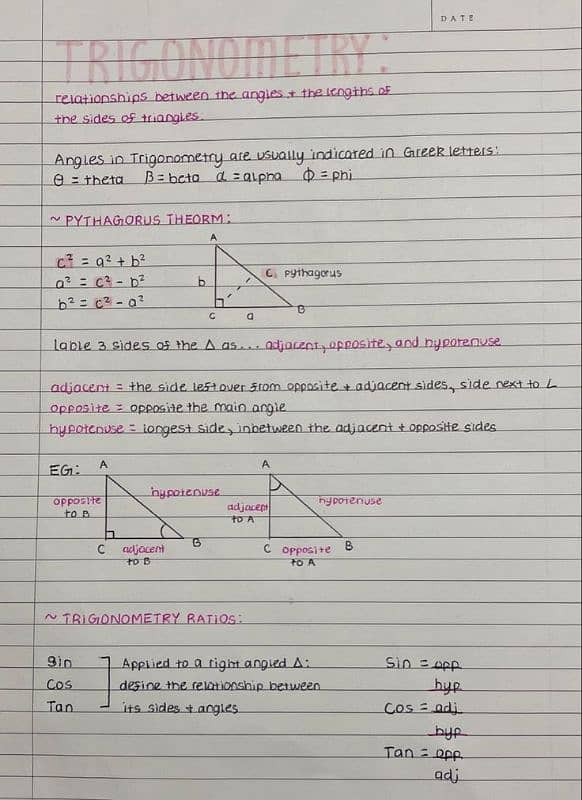 DATE
TRIGONOMETRY:
relationships between the angles + the lengths of
the sides of triangles.
Angles in Trigonometry are usually indicated in Greek letters:
θ = theta β = beta α = alpha Φ = phi
~ PYTHAGORUS THEORM:
c² = a² + b²
a² = c² - b²
b² = c² - a²
A
b
c, pythagorus
C
a
B
lable 3 sides of the Δ as... adjacent, opposite, and hypotenuse
adjacent = the side left over from opposite + adjacent sides, side next to ∟
opposite = opposite the main angle
hypotenuse = longest side, inbetween the adjacent + opposite sides
EG:
A
opposite
to B
hypotenuse
C
adjacent
to B
B
A
adjacent
to A
hypotenuse
C
opposite
to A
B
~ TRIGONOMETRY RATIOS:
Sin
Cos
Tan
Applied to a right angled Δ:
define the relationship between
its sides + angles
Sin = opp
hyp
Cos = adj
hyp
Tan = opp
adj